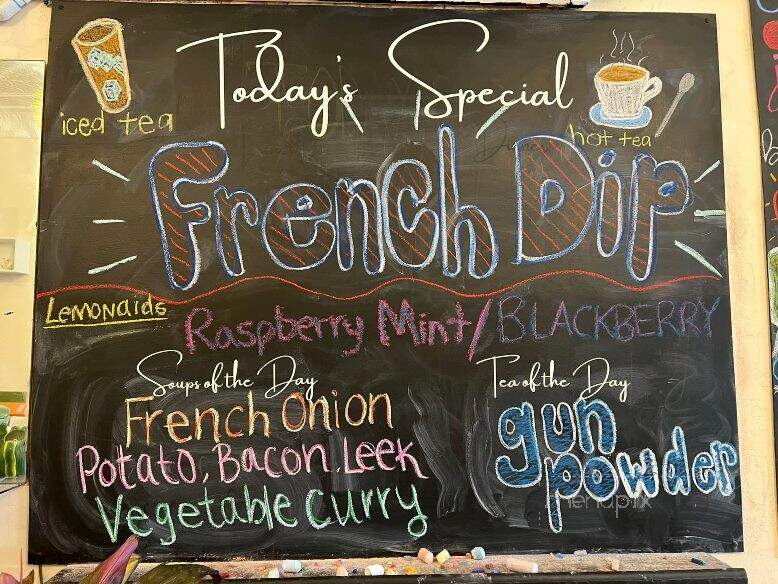 Today's Special
iced tea
hot tea
French Dip
Lemonaids
Raspberry Mint/BLACKBERRY
Soups of the Day
French Onion
Potato, Bacon, Leek
Vegetable Curry
Tea of the Day
gun
powder
menupix